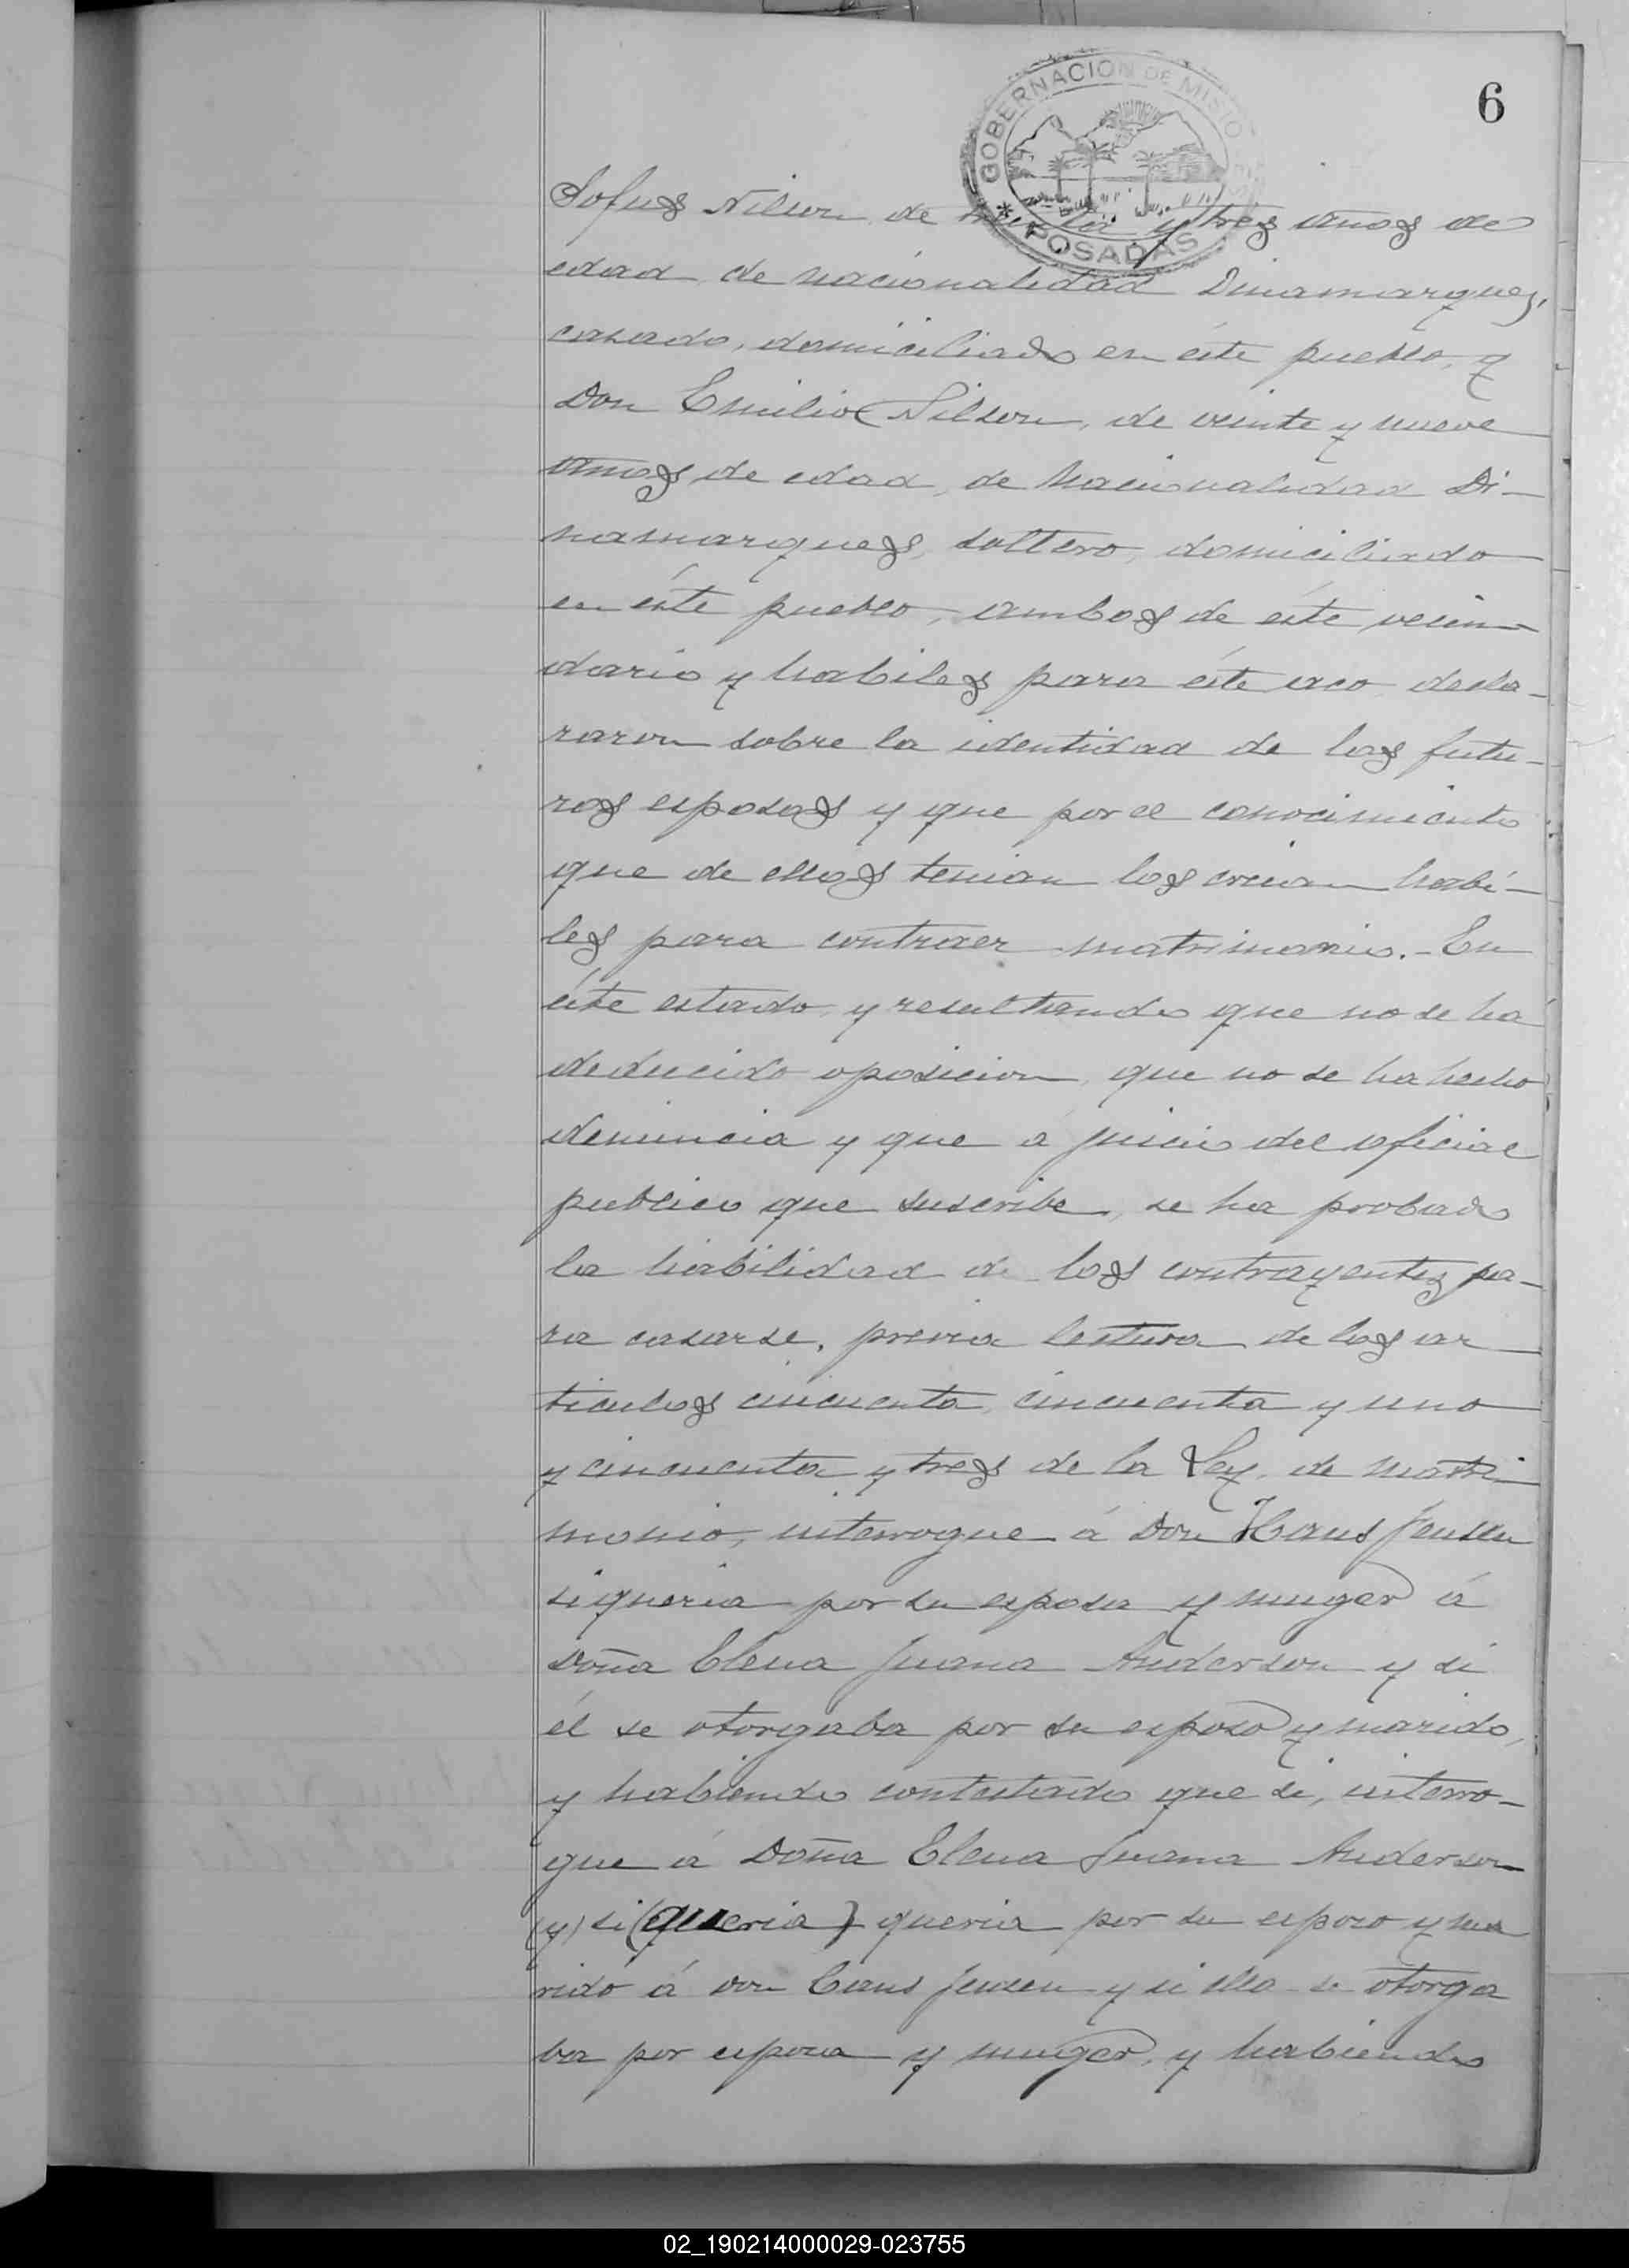 6
GOBERNACION DE MISIO
* POSADAS
Sofus Nilson de treinta y tres años de
edad de nacionalidad Dinamarquez,
casado, domiciliado en éste pueblo, y
Don Emilio Nilson, de veinte y nueve
años de edad, de nacionalidad Di-
namarques, soltero, domiciliado
en éste pueblo, ambos de éste vecin-
dario y habiles para éste aco decla-
raron sobre la identidad de los futu-
ros esposos y que por el conocimiento
que de ellos tenian los creian habi-
les para contraer matrimonio.- En
éste estado y resultando que no se ha
deducido oposicion, que no se ha hecho
denuncia y que á juicio del oficial
publico que suscribe, se ha probado
la habilidad de los contrayentes pa-
ra casarse, previa lectura de los ar
ticulos cincuenta, cincuenta y uno
y cincuenta y tres de la Ley de matri
monio, interrogue á Don Hans Jensen
si queria por su esposa y muger á
Doña Elena Juana Anderson y si
él se otorgaba por su esposo y marido,
y habiendo contestado que si, interro-
gue á Doña Elena Juana Anderson
(y) si (queria) queria por su esposo y ma
rido á Don Hans Jensen y si ella se otorga
ba por esposa y muger, y habiendo
02_190214000029-023755